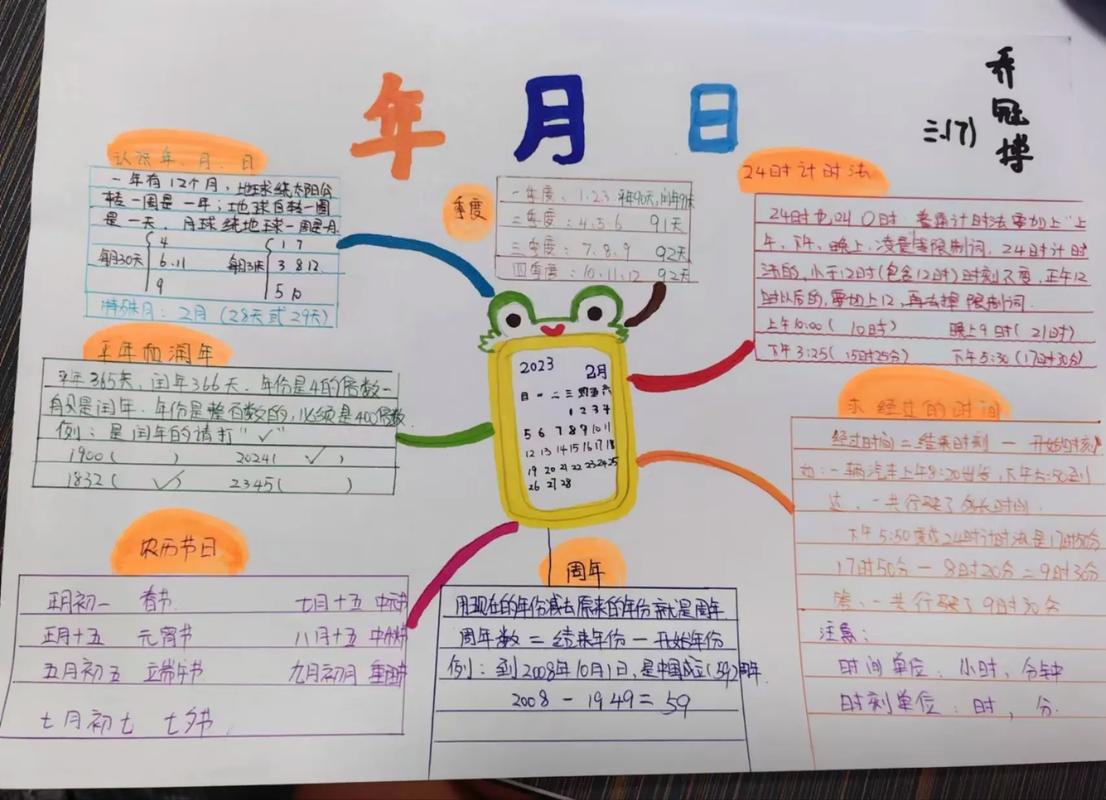 年 月 日
乔冠博
三.(7)
认识年、月、日
一年有12个月，地球绕太阳公
转一周是一年；地球自转一圈
是一天，月球绕地球一周是一月.
每月30天 4 6.11 9
每月31天 1 7 3 8 12. 5 10
特殊月：2月 (28天或29天)
季度
一季度：1.2.3 平年90天,闰年91天
二季度：4.5.6 91天
三季度：7.8.9 92天
四季度：10.11.12 92天
24时计时法
24时也叫0时.普通计时法要加上"上
午、下午、晚上、凌晨等限制词，24时计时
法的，小于12时(包含12时)时刻不变，正午12
时以后的，要加上12，再去掉限制词.
上午10:00( 10时) 晚上9时( 21时)
下午3:25( 15时25分) 下午5:30 (17时30分)
平年和闰年
平年365天，闰年366天.年份是4的倍数一
般是闰年.年份是整百数的，必须是400倍数.
例：是闰年的请打"✓"
1900( ) 2024( ✓ )
1832( ✓) 2345( )
2023 2月
日 一 二 三 四 五 六
1 2 3 4
5 6 7 8 9 10 11
12 13 14 15 16 17 18
19 20 21 22 23 24 25
26 27 28
求经过的时间
经过时间=结束时刻 — 开始时刻
如：一辆汽车上午8:20出发，下午5:50到
达，一共行驶了多长时间.
下午5:50变成24时计时法是17时50分
17时50分 — 8时20分 = 9时30分
答、一共行驶了9时30分
注意：
时间单位：小时、分钟
时刻单位：时，分.
农历节日
正月初一 春节 七月十五 中元节
正月十五 元宵节 八月十五 中秋节
五月初五 端午节 九月初九 重阳节
七月初七 七夕节
周年
用现在的年份减去原来的年份就是周年
周年数 = 结束年份 — 开始年份
例：到2008年10月1日，是中国成立(59)周年.
2008 — 1949 = 59